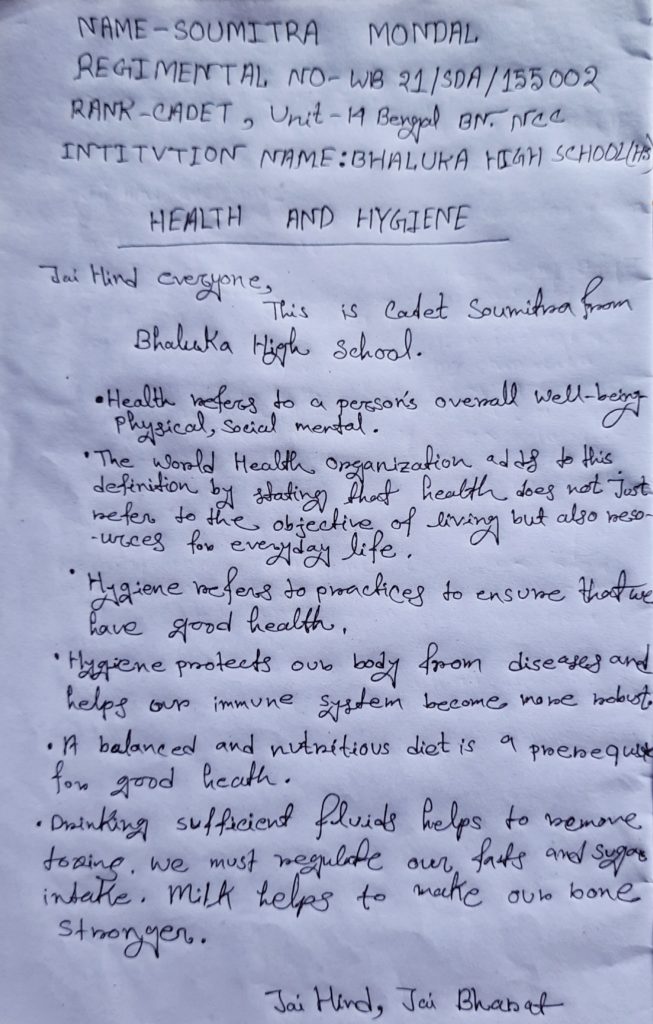 NAME-SOUMITRA MONDAL
REGIMENTAL NO- WB 21/SDA/155002
RANK-CADET, Unit-14 Bengal BN. NCC
INTITVTION NAME: BHALUKA HIGH SCHOOL(HS)
HEALTH AND HYGIENE
Jai Hind everyone,
This is Cadet Soumitra from
Bhaluka High School.
• Health refers to a person's overall well-being
Physical, Social mental.
• The World Health organization adds to this
definition by stating that health does not just
refer to the objective of living but also reso-
-urces for everyday life.
• Hygiene refers to practices to ensure that we
have good health.
• Hygiene protects our body from diseases and
helps our immune system become more robust.
• A balanced and nutritious diet is a prerequist
for good heath.
• Drinking sufficient fluids helps to remove
toxins. we must regulate our fats and sugar
intake. Milk helps to make our bone
Stronger.
Jai Hind, Jai Bharat